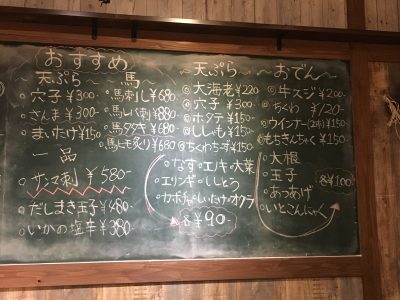 おすすめ
天ぷら
穴子 ¥300-
さんま ¥300-
まいたけ ¥150-
一品
サンマ刺 ¥580-
だしまき玉子 ¥480-
いかの塩辛 ¥380-
馬
馬刺し ¥680
馬レバ刺 ¥880
馬タタキ ¥680-
馬ヒモ炙り ¥680-
天ぷら
大海老 ¥220
穴子 ¥300-
ホタテ ¥150-
ししゃも ¥150-
ちくわちーず ¥150-
なす エノキ 大葉
エリンギ ししとう
カボチャ しいたけ オクラ
各¥90-
おでん
牛スジ ¥200-
ちくわ ¥120-
ウインナー(2本) ¥150-
もちきんちゃく ¥150-
大根
玉子
あつあげ
いとこんにゃく
各¥100-